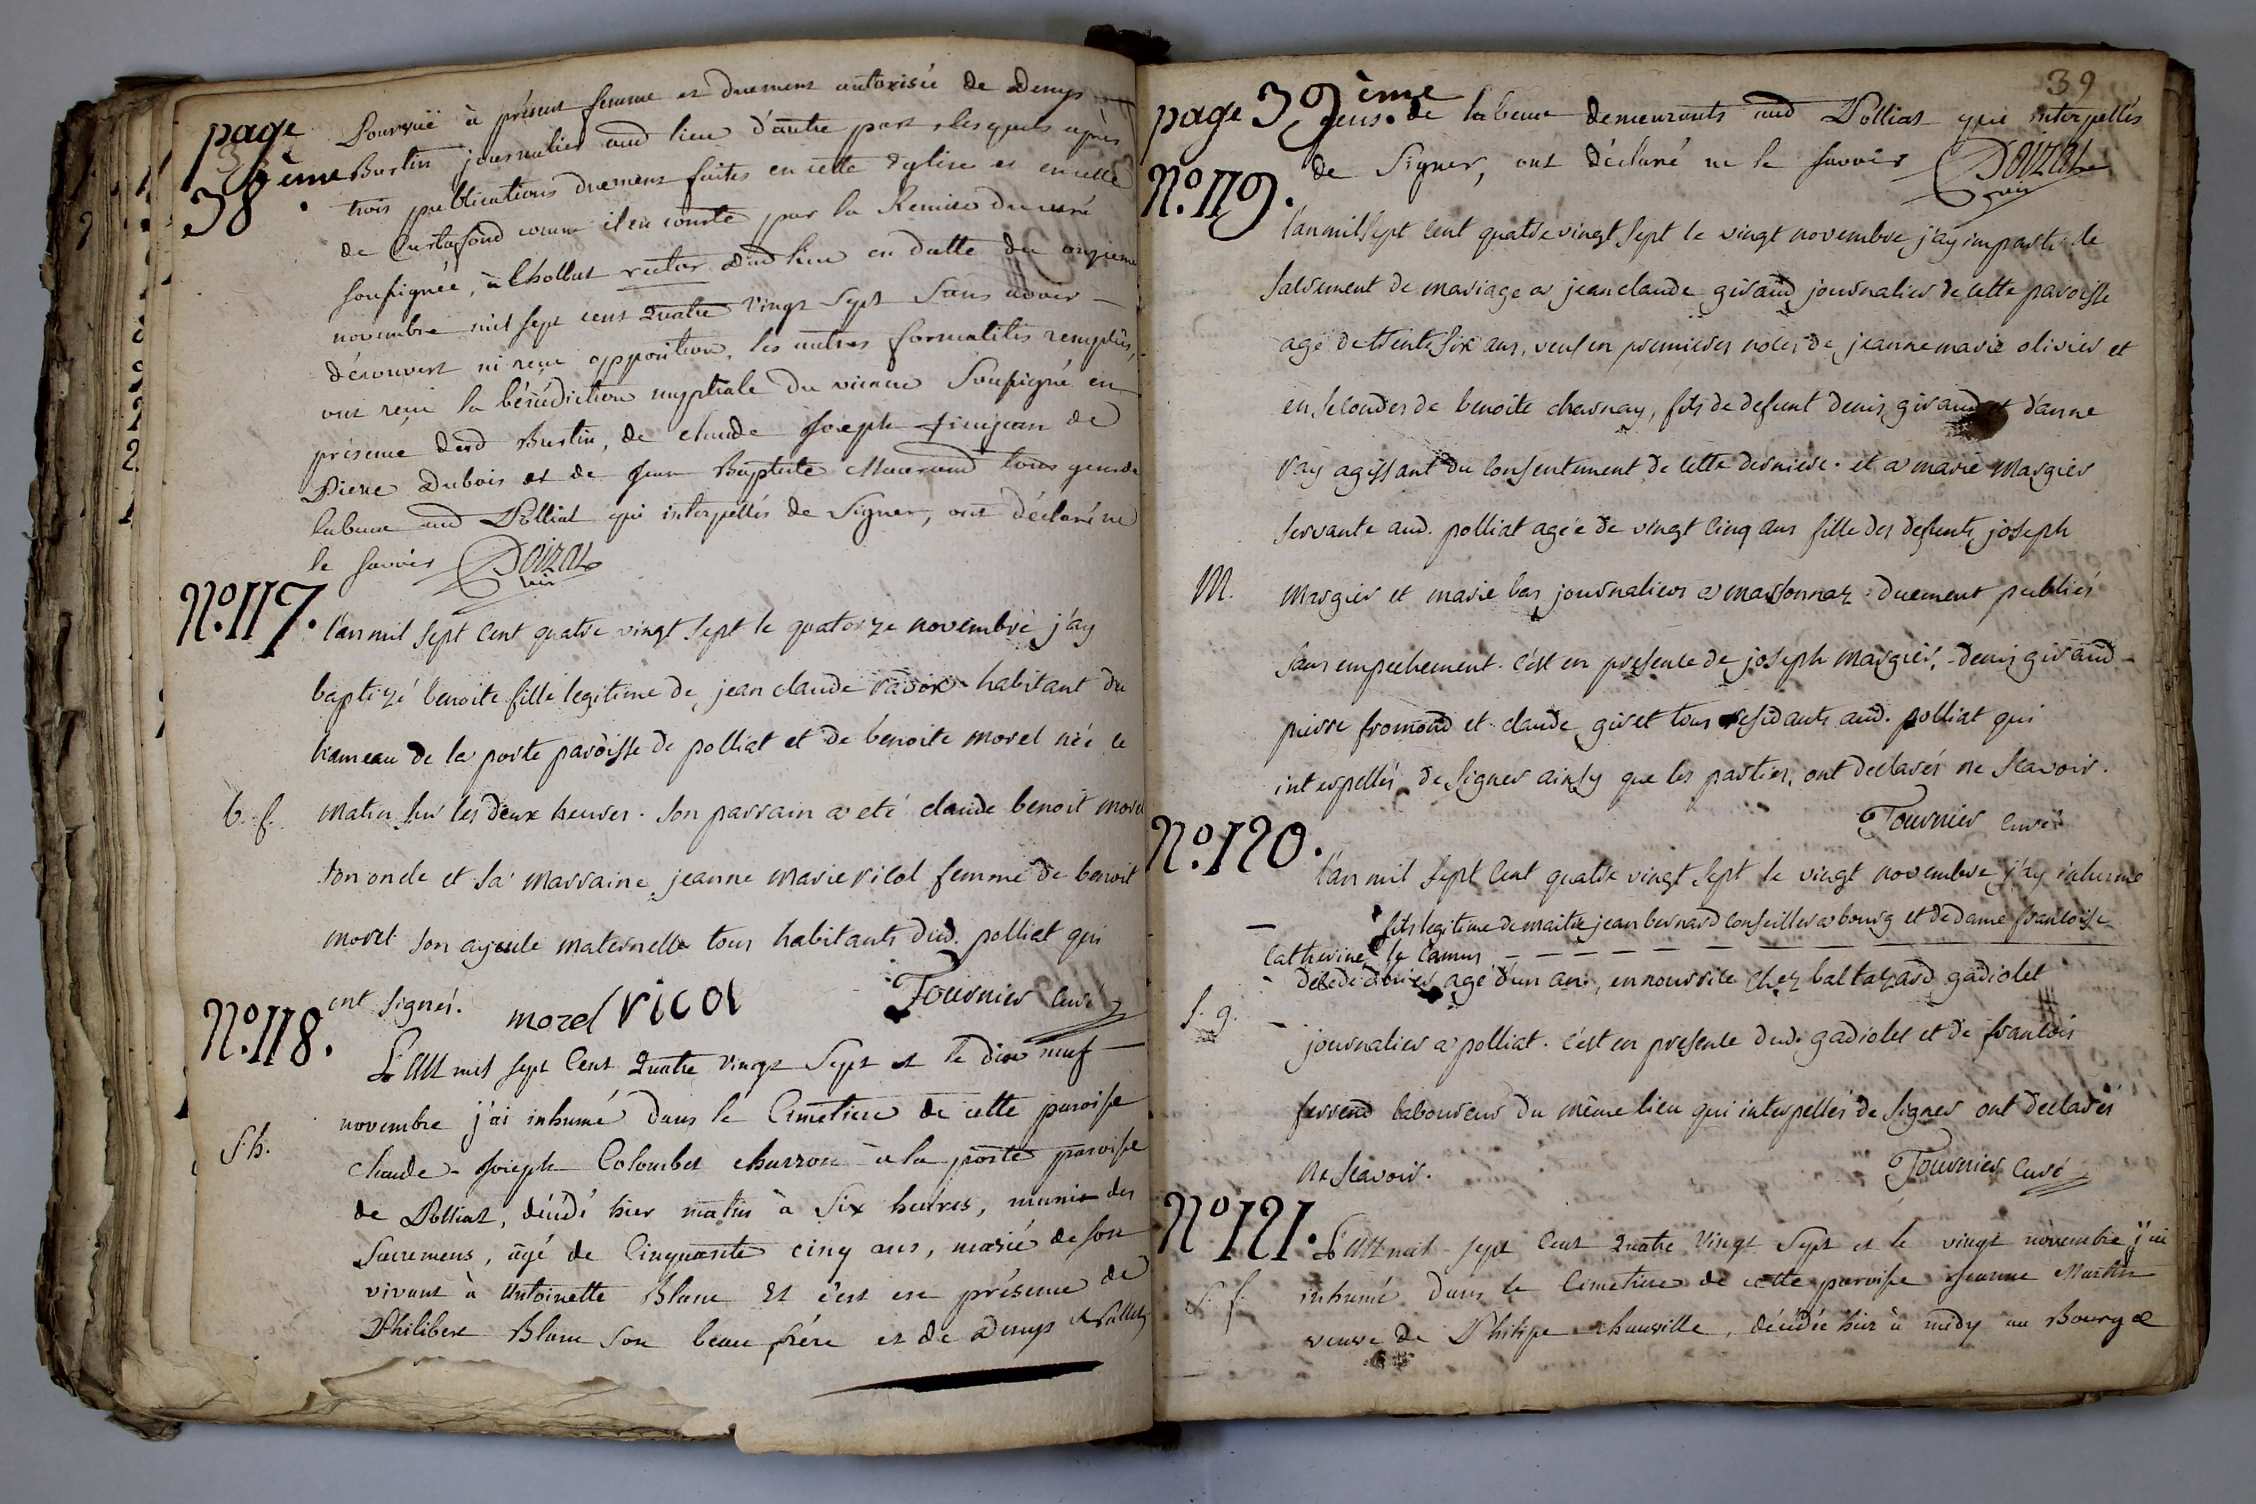 page
38ème.
Pourvuë à présent femme et duement autorisée de Denys
Burtin journalier aud lieu d'autre part lesquels après
trois publications duement faites en cette Eglise et en celle
de Curtafond comme il en conste par la Remise du curé
soussigné, à Chollut rector dud lieu en datte du onzieme
novembre mil sept cent Quatre vingt Sept Sans avoir
découvert ni reçu opposition, les autres formalités remplies,
ont reçu la bénédiction nuptiale du vicaire Soussigné en
présence dud Burtin, de claude Joseph
Pierre Dubois et de Jean Baptiste tous gens de
labeur aud Polliat qui interpellés de Signer, ont déclaré ne
le savoir Doizat
vic
N.º 117.
l'an mil sept cent quatre vingt sept le quatorze novembre j'ay
baptizé benoite fille legitime de jean claude ravox habitant du
hameau de la poste paroisse de polliat et de benoite morel née le
b. f. matin sur les deux heures. son parrain a eté claude benoit morel
son oncle et sa marraine jeanne marie ricol femme de benoit
morel son ayeule maternelle tous habitants dud. polliat qui
ont signés. morel ricol Tournier Curé
N.º 118.
L'an mil sept Cent Quatre vingt Sept et le dix neuf
novembre j'ai inhumé dans le Cimetiere de cette paroisse
S. h. claude Joseph Colombet charron à la poste paroisse
de Polliat, décédé hier matin à Six heures, munie des
Sacremens, âgé de Cinquante cinq ans, marié de son
vivant à Antoinette Blanc Et c'est en présence de
Philibert Blanc son beau frére et de Denys
39
page 39ème
gens de labeur demeurants aud Polliat qui interpellés
de Signer, ont déclaré ne le savoir Doizat
vic
N.º 119.
l'an mil sept cent quatre vingt sept le vingt novembre j'ay imparti le
sacrement de mariage a jean claude giraud journalier de cette paroisse
agé de trente six ans, veuf en premieres noces de jeanne marie olivier et
en secondes de benoite charnay, fils de defunt denis giraud et d'anne
ray agissant du consentement de cette derniere. et a marie margier
servante aud. polliat agée de vingt cinq ans fille des defunts joseph
M. margier et marie bas journaliers a marsonnaz duement publiés
sans empechement. c'est en presence de joseph margier, denis giraud
pierre fromond et claude giret tous residants aud. polliat qui
interpellés de signer ainsy que les parties, ont declarés ne scavoir.
Tournier Curé
N.º 120.
l'an mil sept cent quatre vingt sept le vingt novembre j'ay inhumé
fils legitime de maitre jean bernard conseiller a bourg et de dame francoise
catherine le camus
decedé agé d'un an, en nourrice chez baltazard gadiolet
S. g. journalier a polliat. c'est en presence dud. gadiolet et de francois
ferrend laboureur du même lieu qui interpellés de signer ont declarés
ne scavoir. Tournier Curé
N.º 121.
L'an mil sept Cent Quatre Vingt Sept et le vingt novembre j'ai
S. f. inhumé dans le Cimetiere de cette paroisse Jeanne Martin
veuve de Philipe chanville, décédée hier à midy au Bourg &